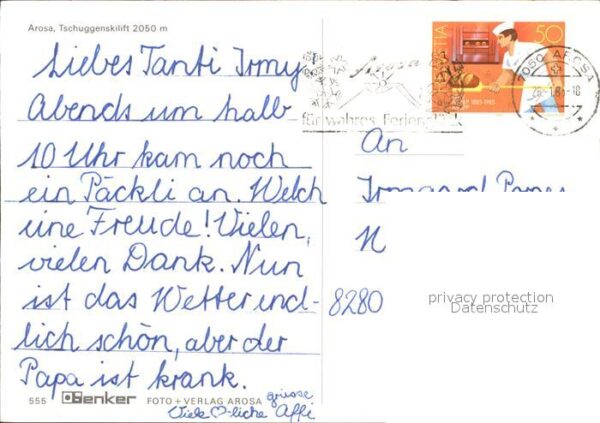 Arosa, Tschuggenskilift 2050 m
Liebes Tanti Irmy
Abends um halb
10 Uhr kam noch
ein Päckli an. Welch
eine Freude! Vielen,
vielen Dank. Nun
ist das Wetter end-
lich schön, aber der
Papa ist krank.
Viele ♡-liche Affi
grüsse
555 Benker FOTO + VERLAG AROSA
HELVETIA 50
1885-1985
Arosa
für wahres
7050 AROSA
An
8280
privacy protection
Datenschutz